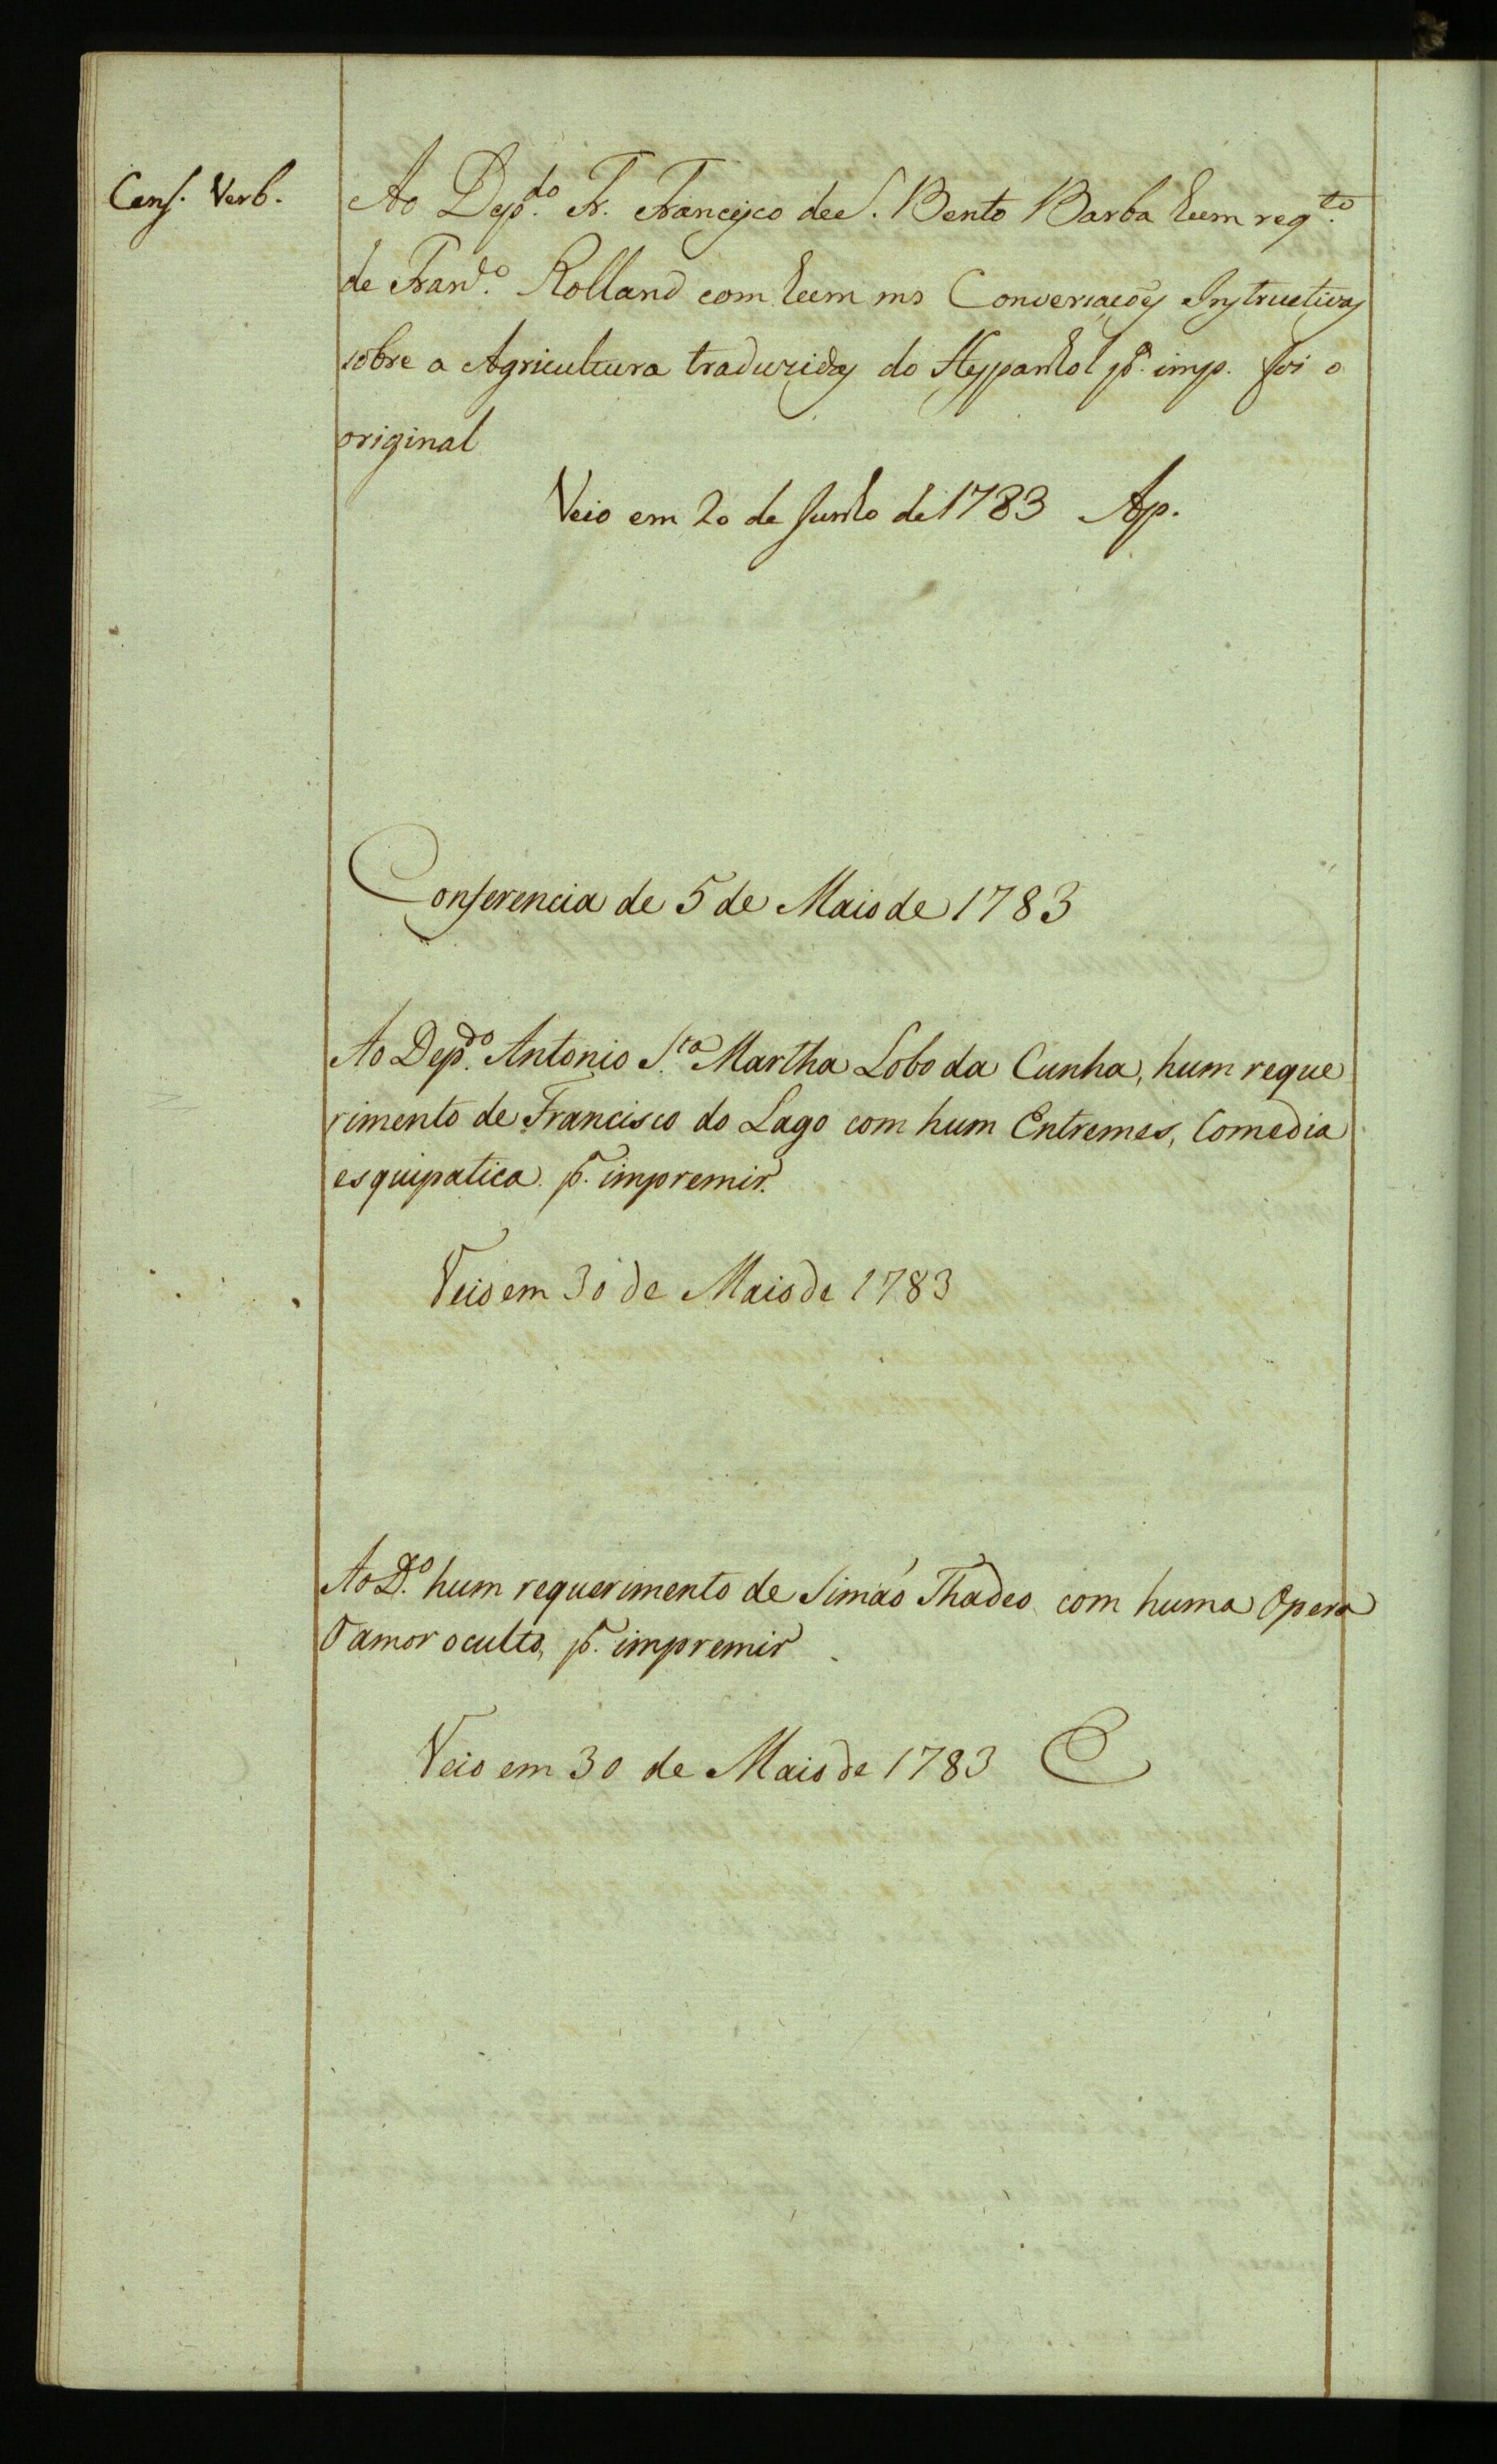 Cens. Verb.
Ao Dep.do Fr. Francisco de S. Bento Barba hum req.to
de Fran.co Rolland com hum ms Conversações Instructivas
sobre a Agricultura traduzidas do Hespanhol p.a imp. foi o
original
Veio em 20 de Junho de 1783 Ap.
Conferencia de 5 de Maio de 1783
Ao Dep.do Antonio S.ta Martha Lobo da Cunha, hum reque
rimento de Francisco do Lago com hum Entremes, Comedia
esquipatica p.a impremir.
Veio em 30 de Maio de 1783
Ao D.o hum requerimento de Simaõ Thadeo com huma Opera
O amor oculto, p.a impremir
Veio em 30 de Maio de 1783 E